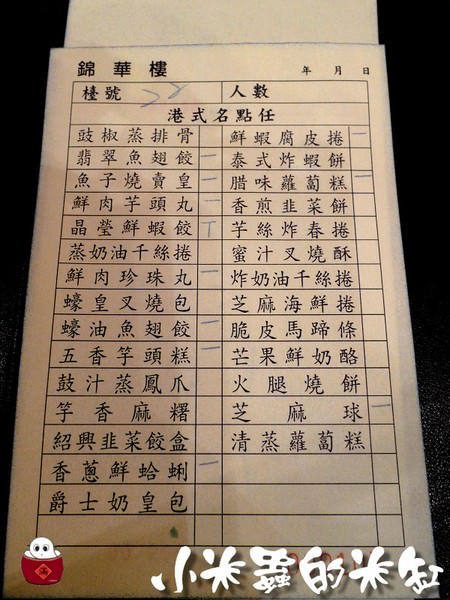 錦華樓
年 月 日
檯號 22 人數
港式名點任
豉椒蒸排骨 鮮蝦腐皮捲 一
翡翠魚翅餃 一 泰式炸蝦餅
魚子燒賣皇 一 腊味蘿蔔糕 一
鮮肉芋頭丸 一 香煎韭菜餅
晶瑩鮮蝦餃 丅 芋絲炸春捲
蒸奶油千絲捲 蜜汁叉燒酥
鮮肉珍珠丸 一 炸奶油千絲捲
蠔皇叉燒包 芝麻海鮮捲
蠔油魚翅餃 一 脆皮馬蹄條
五香竽頭糕 一 芒果鮮奶酪
鼓汁蒸鳳爪 火腿燒餅
竽香麻糬 芝麻球 一
紹興韭菜餃盒 清蒸蘿蔔糕
香蔥鮮蛤蜊 一
爵士奶皇包
小米蟲的米缸